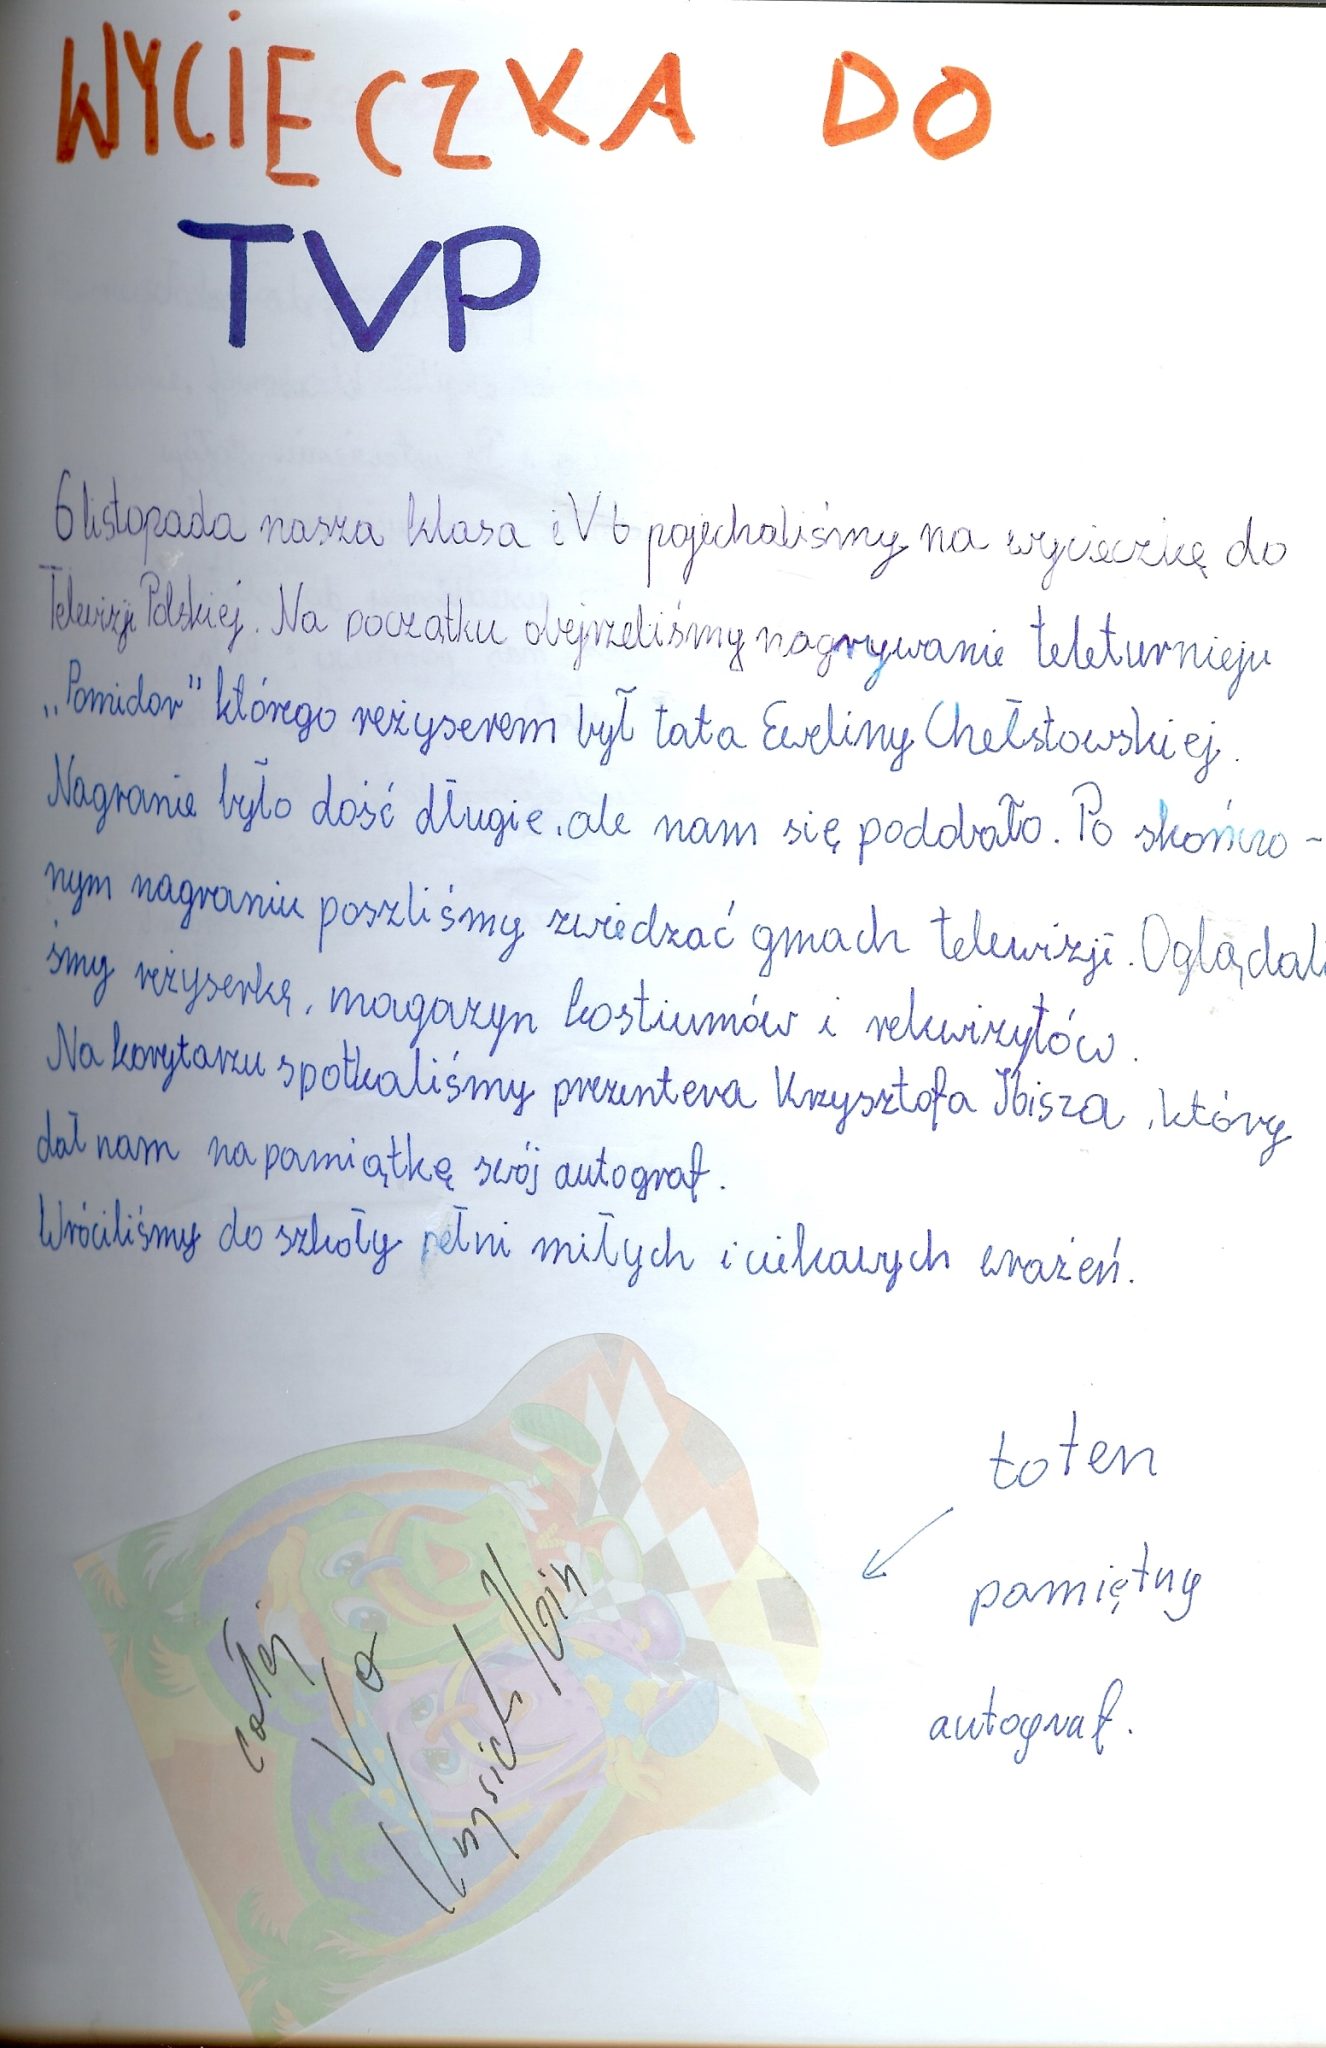 WYCIECZKA DO
TVP
6 listopada nasza klasa i V b pojechaliśmy na wycieczkę do
Telewizji Polskiej. Na początku obejrzeliśmy nagrywanie teleturnieju
„Pomidor" którego reżyserem był tata Eweliny Chełstowskiej.
Nagranie było dość długie, ale nam się podobało. Po skończo-
nym nagraniu poszliśmy zwiedzać gmach telewizji. Oglądali
śmy reżyserkę, magazyn kostiumów i rekwizytów.
Na korytarzu spotkaliśmy prezentera Krzysztofa Ibisza, który
dał nam na pamiątkę swój autograf.
Wróciliśmy do szkoły pełni miłych i ciekawych wrażeń.
to ten
pamiętny
autograf.
całej
Va
Krzysiek Ibisz